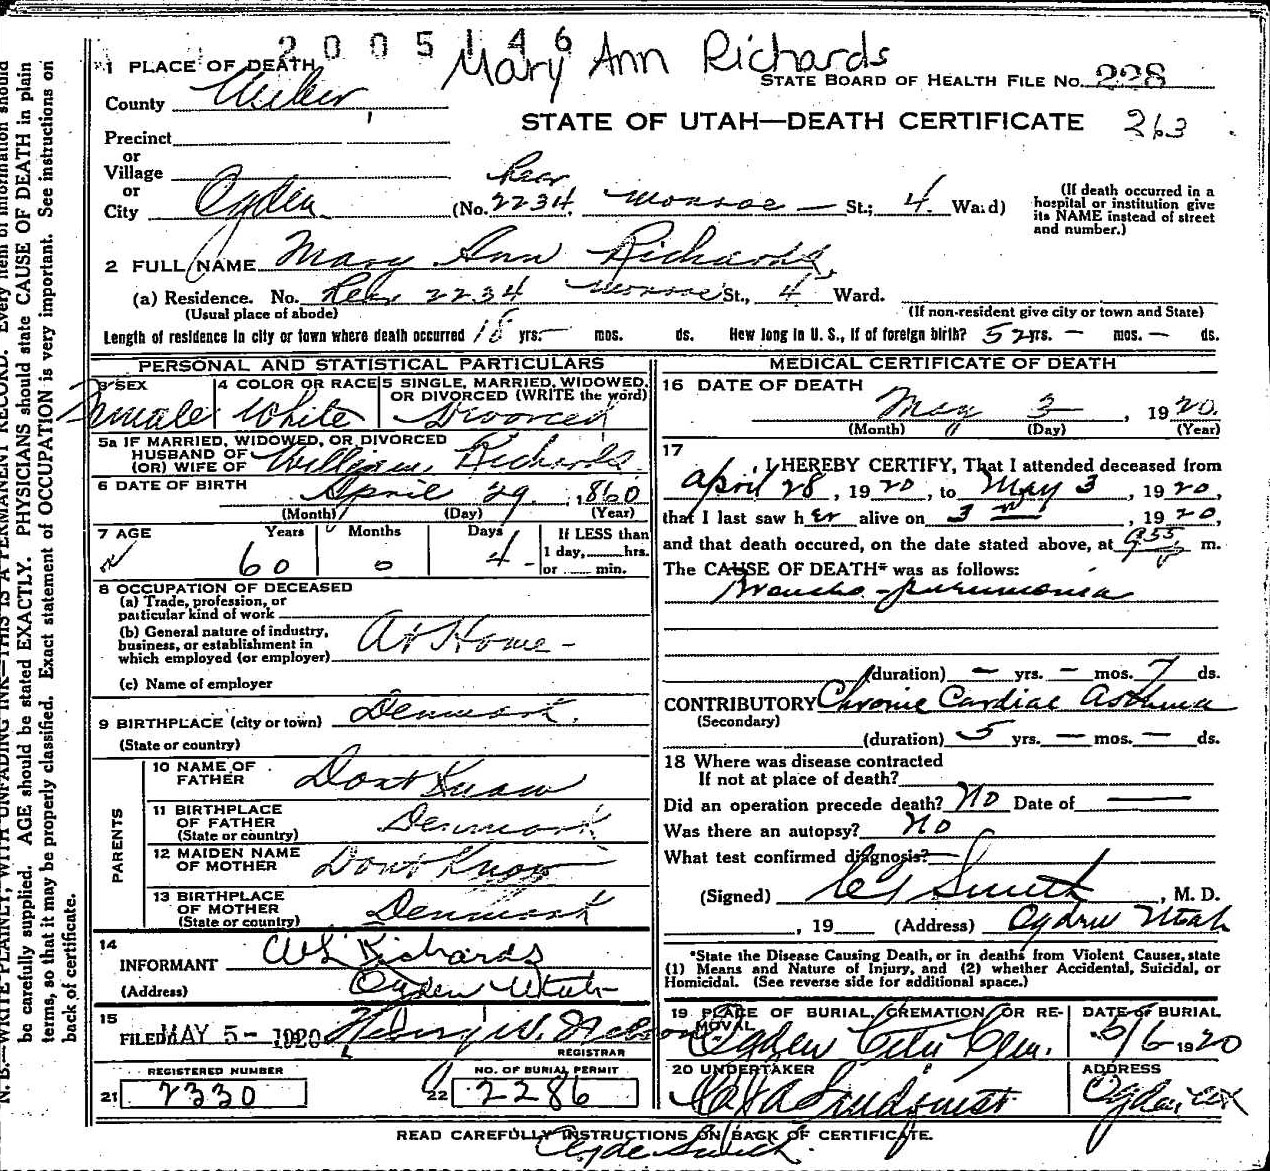 2005146
Mary Ann Richards
1 PLACE OF DEATH
STATE BOARD OF HEALTH FILE No. 228
County Weber,
STATE OF UTAH—DEATH CERTIFICATE 263
Precinct
or
Village
or
City Ogden (No. Rear 2234 Monroe — St.; 4. Ward)
(If death occurred in a hospital or institution give its NAME instead of street and number.)
2 FULL NAME Mary Ann Richards,
(a) Residence. No. Rear 2234 Monroe St., 4 Ward.
(Usual place of abode) (If non-resident give city or town and State)
Length of residence in city or town where death occurred 18 yrs. — mos. ds. How long in U. S., if of foreign birth? 52 yrs. — mos. — ds.
PERSONAL AND STATISTICAL PARTICULARS
3 SEX Female
4 COLOR OR RACE White
5 SINGLE, MARRIED, WIDOWED, OR DIVORCED (WRITE the word) Divorced
5a IF MARRIED, WIDOWED, OR DIVORCED
HUSBAND OF
(OR) WIFE OF William Richards
6 DATE OF BIRTH April 29, 1860
(Month) (Day) (Year)
7 AGE Years Months Days If LESS than
60 0 4 - 1 day, hrs.
or min.
8 OCCUPATION OF DECEASED
(a) Trade, profession, or
particular kind of work
(b) General nature of industry,
business, or establishment in
which employed (or employer) At Home -
(c) Name of employer
9 BIRTHPLACE (city or town) Denmark.
(State or country)
PARENTS
10 NAME OF FATHER Dont Know
11 BIRTHPLACE OF FATHER (State or country) Denmark
12 MAIDEN NAME OF MOTHER Dont Know
13 BIRTHPLACE OF MOTHER (State or country) Denmark
14
INFORMANT W L Richards
(Address) Ogden Utah
15
FILED MAY 5 - 1920 Henry W. Nelson
REGISTRAR
REGISTERED NUMBER NO. OF BURIAL PERMIT
21 2330 22 2286
MEDICAL CERTIFICATE OF DEATH
16 DATE OF DEATH
May 3, 1920.
(Month) (Day) (Year)
17
I HEREBY CERTIFY, That I attended deceased from
April 28, 1920, to May 3, 1920,
that I last saw her alive on 3rd, 1920,
and that death occured, on the date stated above, at 9 55 p m.
The CAUSE OF DEATH* was as follows:
Broncho-pneumonia
(duration) — yrs. — mos. 7 ds.
CONTRIBUTORY Chronic Cardiac Asthma
(Secondary)
(duration) 5 yrs. — mos. — ds.
18 Where was disease contracted
If not at place of death?
Did an operation precede death? No Date of —
Was there an autopsy? No
What test confirmed diagnosis? —
(Signed) Smith, M. D.
, 19 (Address) Ogden Utah
*State the Disease Causing Death, or in deaths from Violent Causes, state
(1) Means and Nature of Injury, and (2) whether Accidental, Suicidal, or
Homicidal. (See reverse side for additional space.)
19 PLACE OF BURIAL, CREMATION, OR REMOVAL DATE OF BURIAL
Ogden City Cem. 5/6 1920
20 UNDERTAKER ADDRESS
Lindquist Ogden
READ CAREFULLY INSTRUCTIONS ON BACK OF CERTIFICATE.
N. B.—WRITE PLAINLY, WITH UNFADING INK—THIS IS A PERMANENT RECORD. Every item of information should
be carefully supplied. AGE should be stated EXACTLY. PHYSICIANS should state CAUSE OF DEATH in plain
terms, so that it may be properly classified. Exact statement of OCCUPATION is very important. See instructions on
back of certificate.